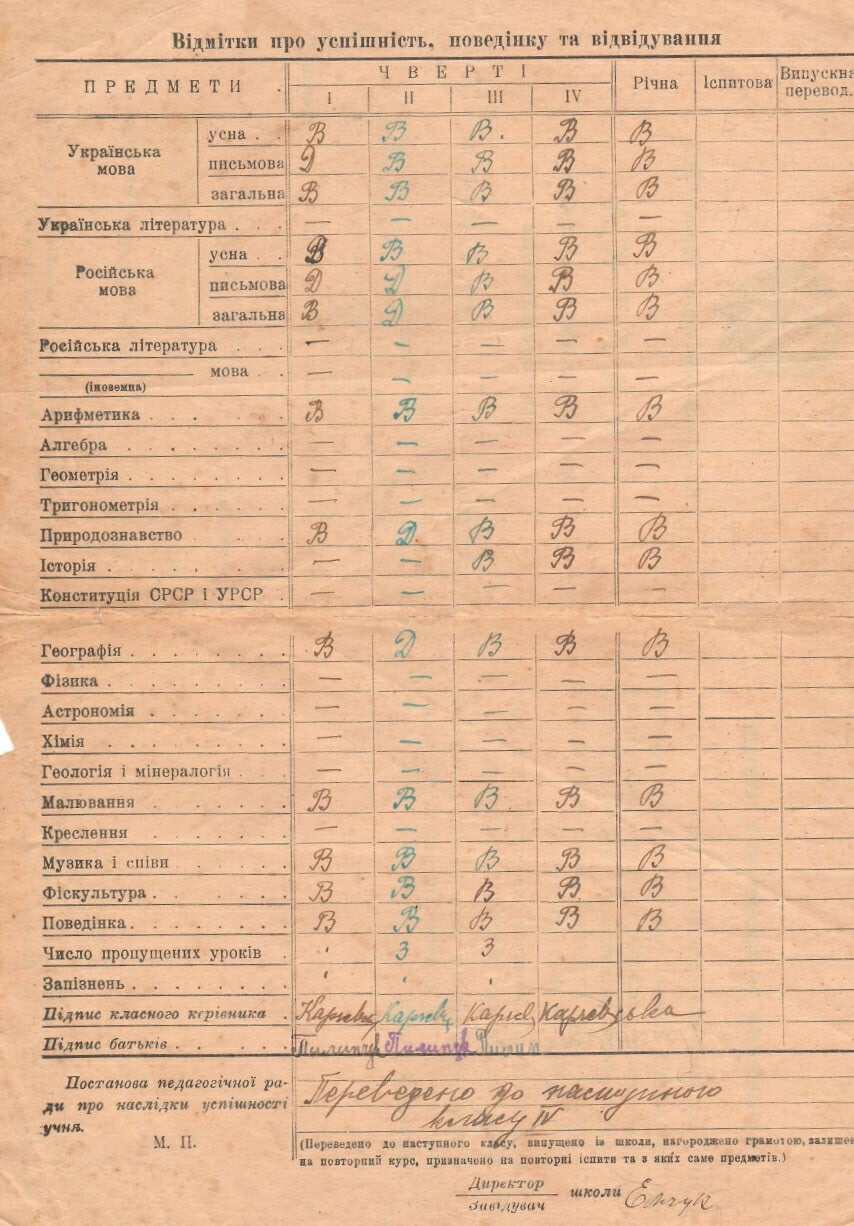 Відмітки про успішність, поведінку та відвідування
ПРЕДМЕТИ . ЧВЕРТІ Річна Іспитова Випускна перевод.
I II III IV
Українська мова усна . . В В В. В В
письмова Д В В В В
загальна В В В В В
Українська література . . . — — — — —
Російська мова усна . . В В В В В
письмова Д Д В В В
загальна В Д В В В
Російська література . . . — — — — —
мова . . — — — — —
(іноземна)
Арифметика . . . . . В В В В В
Алгебра . . . . . . . — — — — —
Геометрія . . . . . . — — — — —
Тригонометрія . . . . . — — — — —
Природознавство . . . В Д В В В
Історія . . . . . . — — В В В
Конституція СРСР і УРСР . — — — — —
Географія . . . . . . . В Д В В В
Фізика . . . . . . . . — — — — —
Астрономія . . . . . . — — — — —
Хімія . . . . . . . — — — — —
Геологія і мінералогія . . . — — — — —
Малювання . . . . . . В В В В В
Креслення . . . . . . — — — — —
Музика і співи . . . . . В В В В В
Фіскультура . . . . . . В В В В В
Поведінка . . . . . . . В В В В В
Число пропущених уроків . 3 3
Запізнень . . . . . . .
Підпис класного керівника .
Підпис батьків . . . . . Пилипчук Пилипчук
Постанова педагогічної ра-
ди про наслідки успішності
учня.
Переведено до наступного
класу IV
М. П.
(Переведено до наступного класу, випущено із школи, нагороджено грамотою, залишен
на повторний курс, призначено на повторні іспити та з яких саме предметів.)
Директор
Завідувач школи